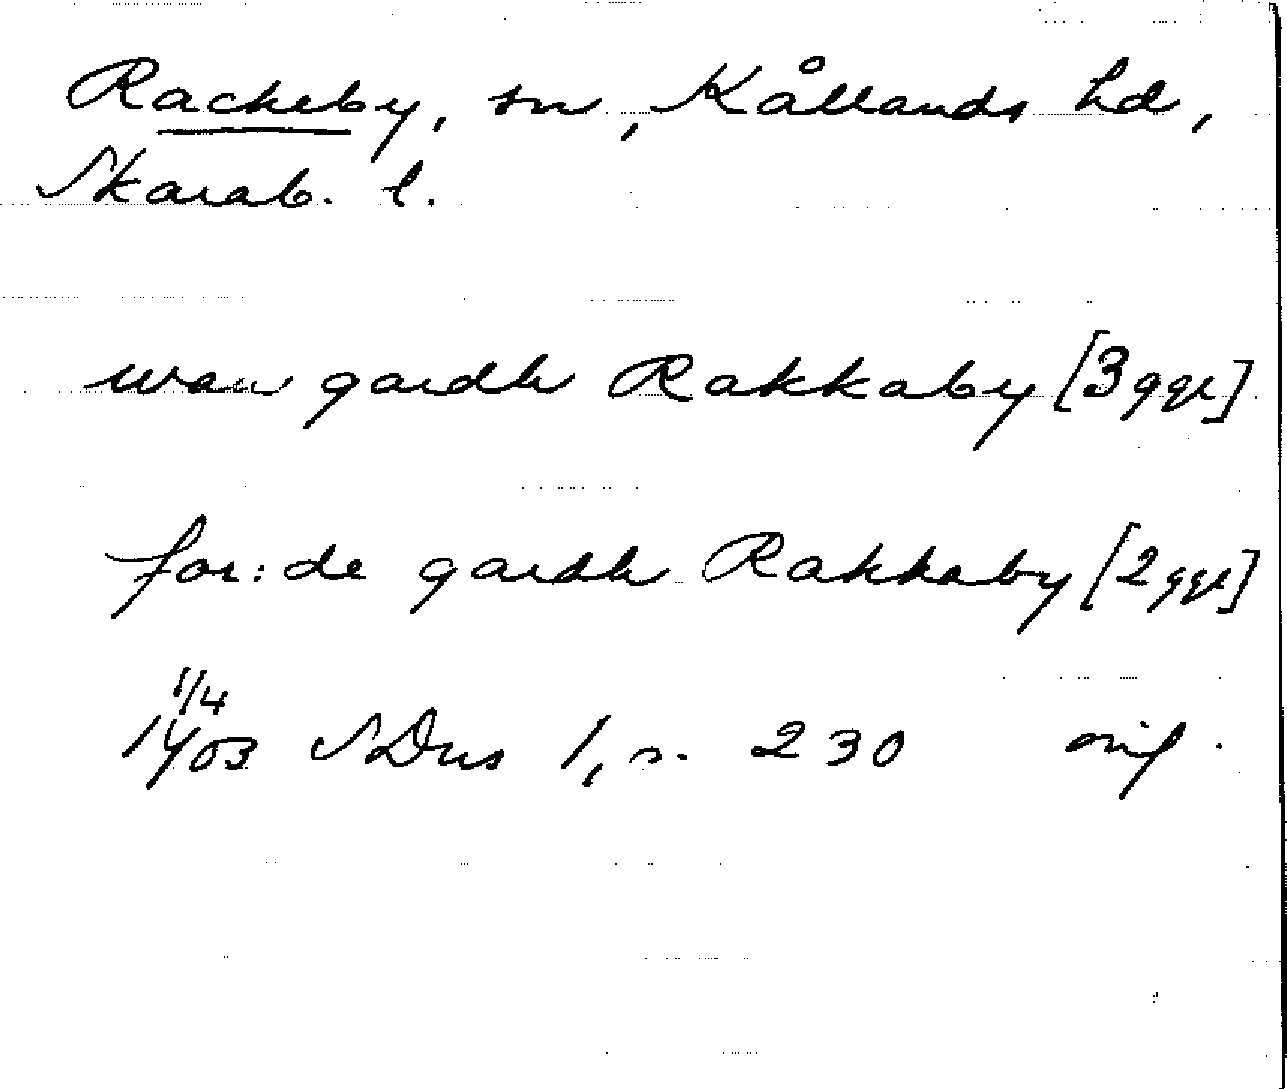 Rackeby, sn, Kållands hd,
Skarab. l.
wan gardh Rakkaby [3 ggr]
for:de gardh Rakkaby [2 ggr]
1/4
1403 SDns 1, s. 230 orig.